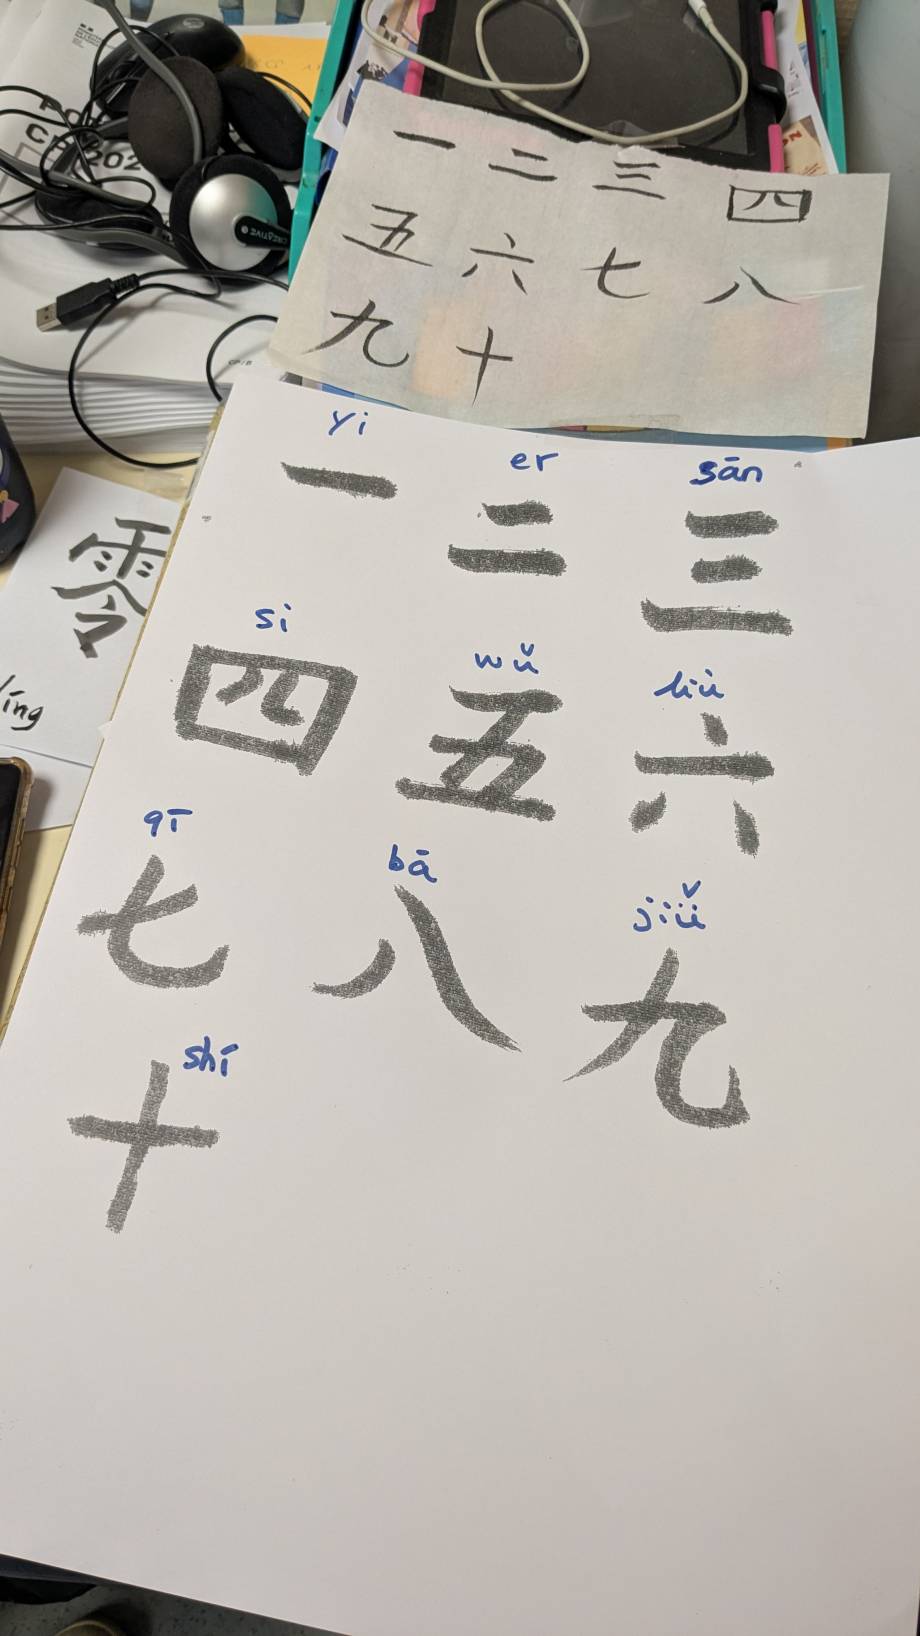 一 二 三 四
五 六 七 八
九 十
yi er sān
一 二 三
si wǔ liù
四 五 六
qī bā jiǔ
七 八 九
shí
十
零
líng
CREATIVE